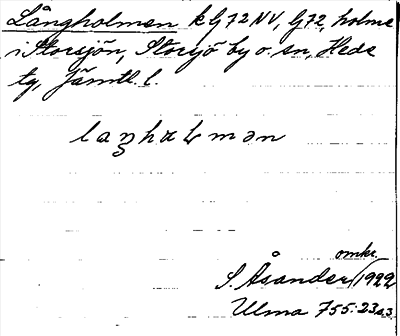 Långholmen k G 72 NV, G72, holme
i Storsjön, Storsjö by o. sn, Hede
tg, Jämtl. l.
omkr.
S. Åsander/1922
Ulma 755:23 a3